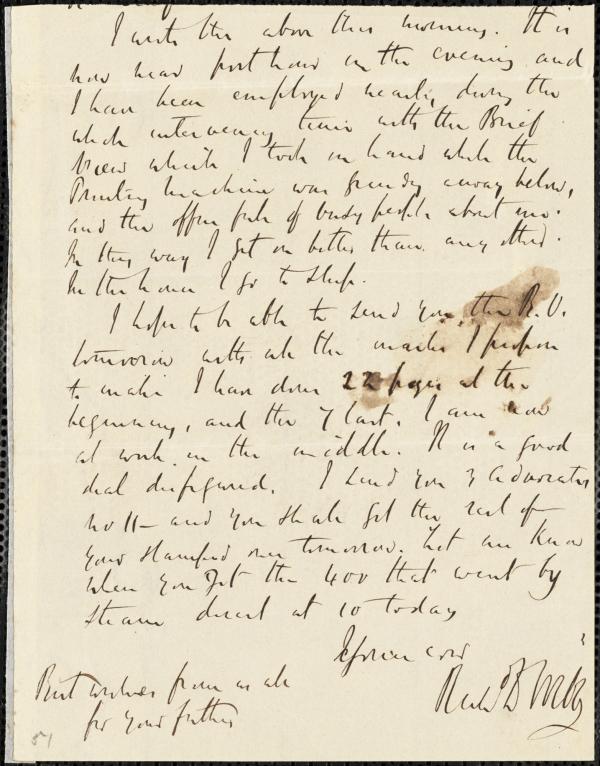 I wrote the above this morning. It is
now near post hour in the evening and
I have been employed nearly during the
whole intervening time with the Brief
View which I took in hand while the
Printing machine was grinding away below,
and the office full of busy people about me.
In this way I get on better than any other.
In the house I go to sleep.
I hope to be able to send you the B.V.
tomorrow with all the marks I propose
to make. I have done 22 pages at the
beginning, and the 7 last. I am now
at work in the middle. It is a good
deal disfigured. I send you 3 Advocates
No 11 and you shall get the rest of
your stamped ones tomorrow. Let me know
when you get the 400 that went by
Steam direct at 10 today
Yours
Richd D Webb
Best wishes from us all
for your father
51